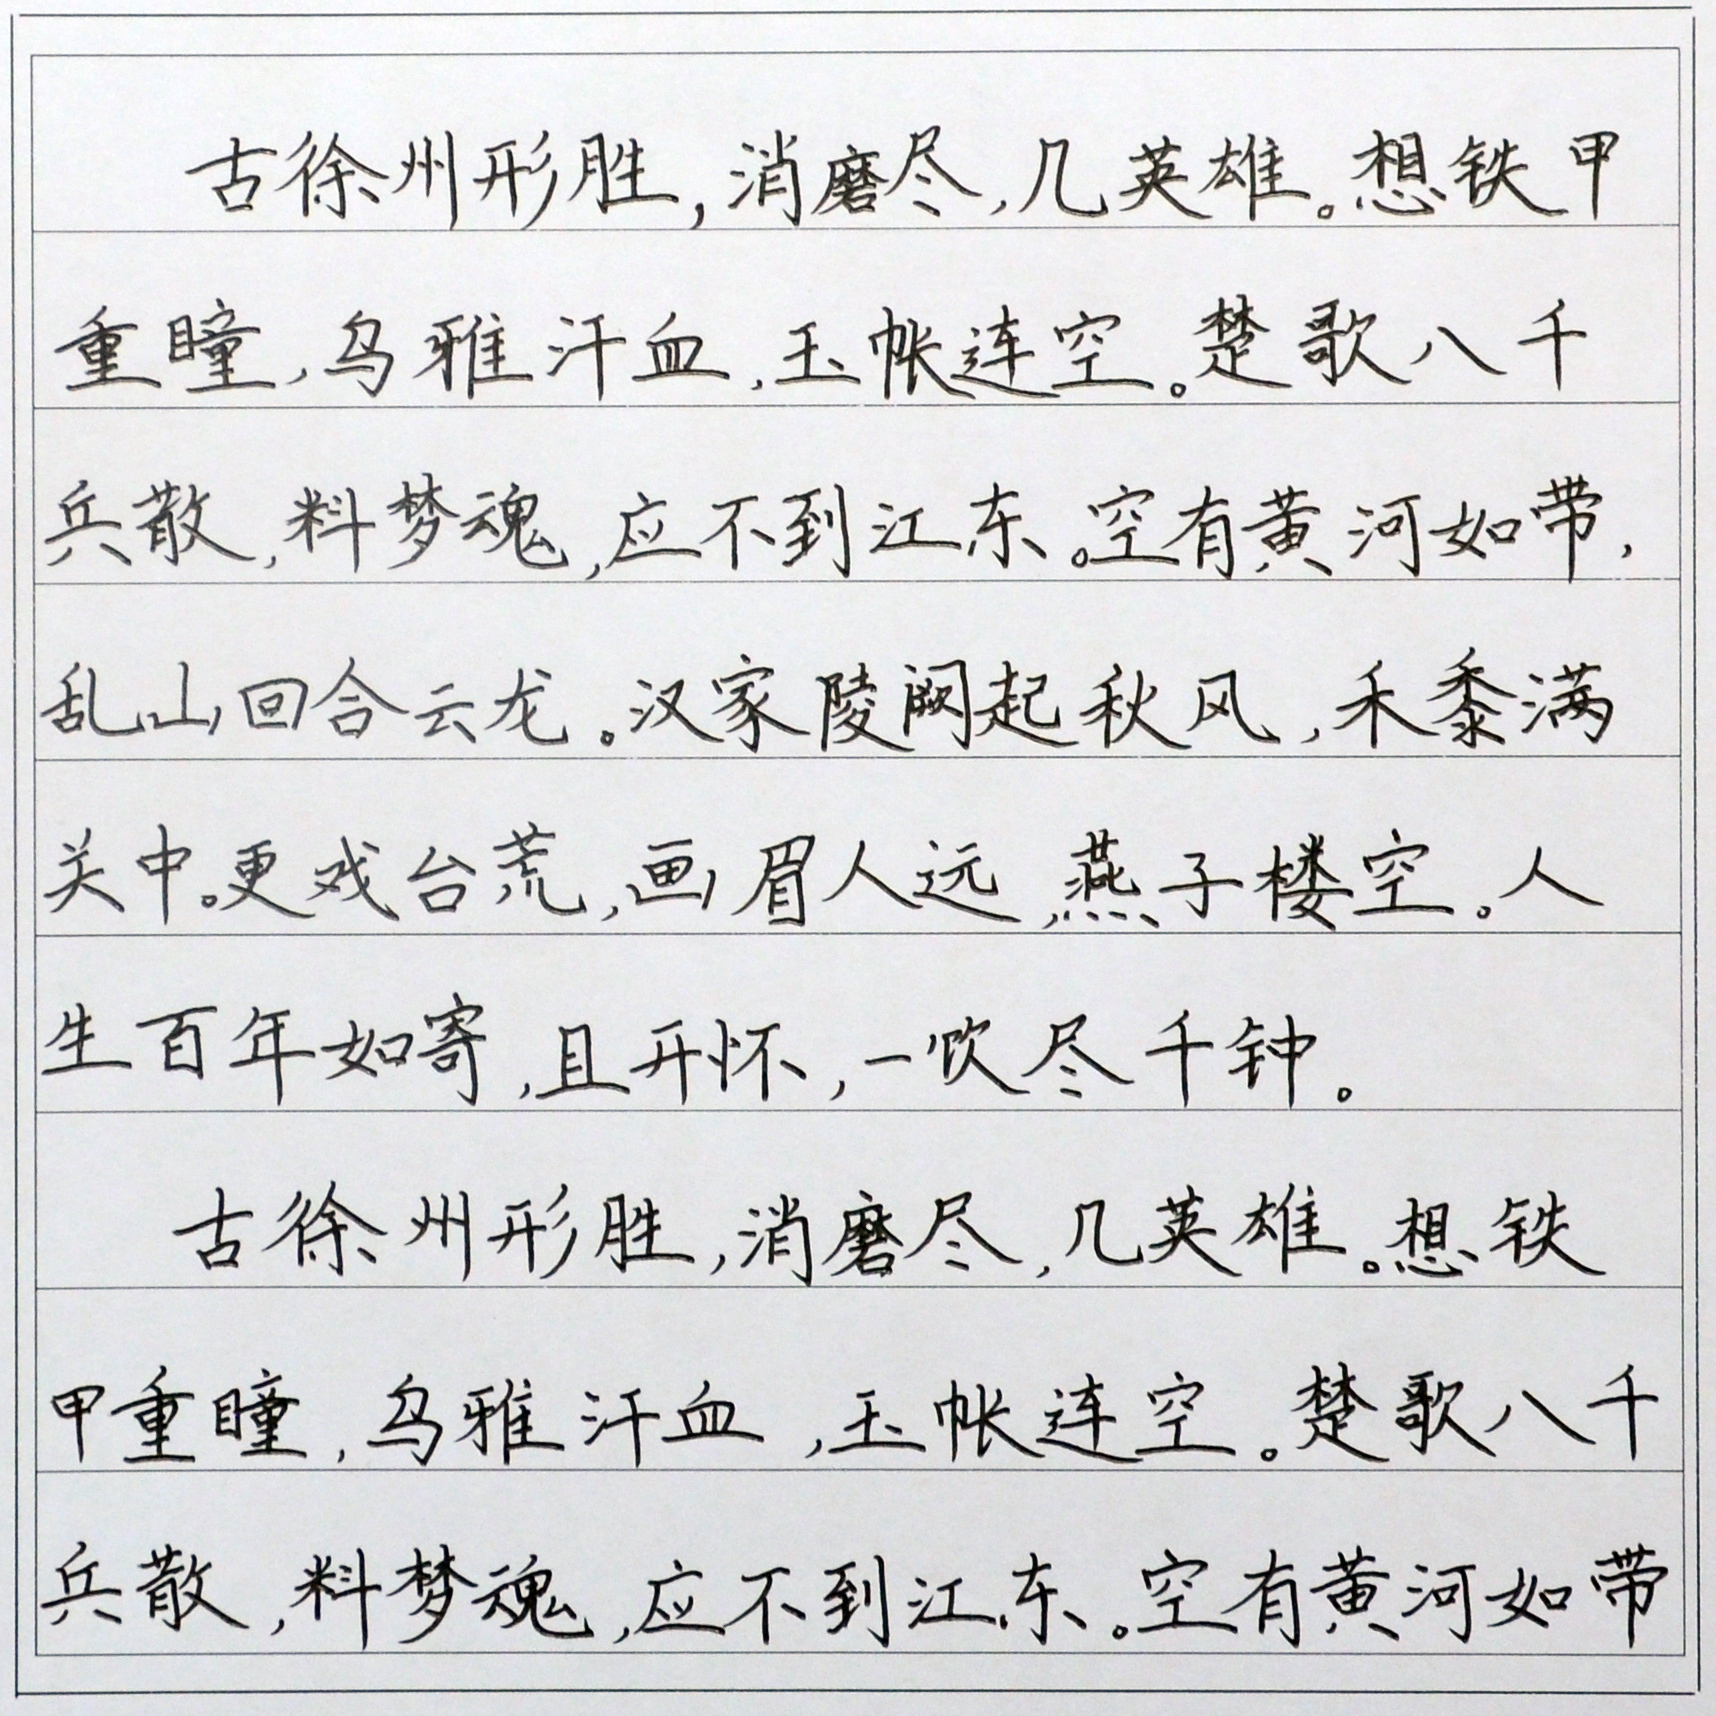 古徐州形胜，消磨尽，几英雄。想铁甲
重瞳，乌雅汗血，玉帐连空。楚歌八千
兵散，料梦魂，应不到江东。空有黄河如带，
乱山回合云龙。汉家陵阙起秋风，禾黍满
关中。更戏台荒，画眉人远，燕子楼空。人
生百年如寄，且开怀，一饮尽千钟。
古徐州形胜，消磨尽，几英雄。想铁
甲重瞳，乌雅汗血，玉帐连空。楚歌八千
兵散，料梦魂，应不到江东。空有黄河如带